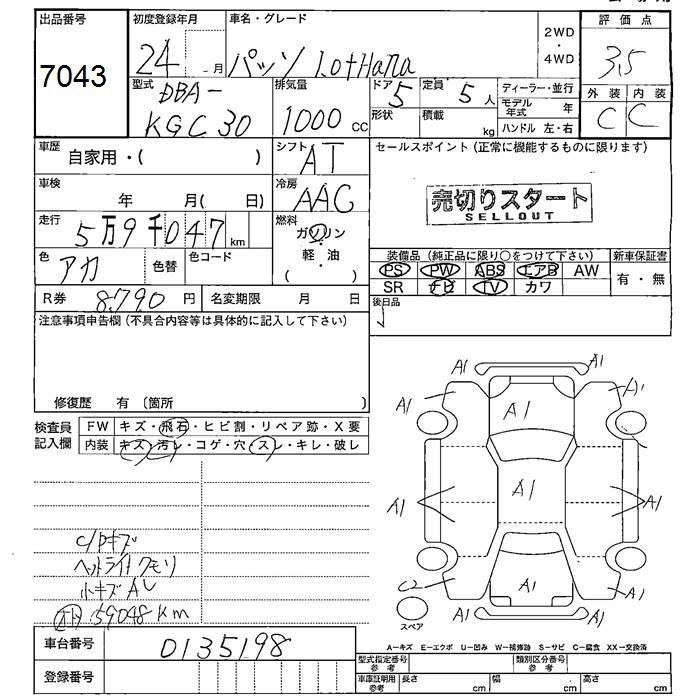 出品番号
7043
初度登録年月
24 月
車名・グレード
パッソ +Hana
2WD
・
4WD
評価点
3.5
外装 内装
C C
型式
DBA-
KGC30
排気量
1000 cc
ドア 5
定員 5 人
形状
積載 kg
ディーラー・並行
モデル年式 年
ハンドル 左・右
車歴
自家用・( )
シフト
AT
セールスポイント(正常に機能するものに限ります)
売切りスタート
SELLOUT
車検
年 月( 日)
冷房
AAC
走行
5万9千047 km
燃料
ガソリン
・
(軽・油)
色
アカ
色替
色コード
R券 8,790 円
名変期限 月 日
装備品(純正品に限り○をつけて下さい)
新車保証書
PS PW ABS エアB AW
SR ナビ TV カワ
有・無
後日品
注意事項申告欄(不具合内容等は具体的に記入して下さい)
修復歴 有(箇所 )
検査員
記入欄
FW キズ・飛石・ヒビ割・リペア跡・X要
内装 キズ・汚レ・コゲ・穴・スレ・キレ・破レ
C/Pキズ
ヘットライトクモリ
小キズ AU
59048 Km
A1 A1
A1 A1 A1
A1 A1 A1
C2 A1 A1
A1 A1
スペア
A-キズ E-エクボ U-凹み W-補修跡 S-サビ C-腐食 XX-交換済
車台番号
0135198
登録番号
型式指定番号
参考
類別区分番号
参考
車庫証明用
参考
長さ cm 幅 cm 高さ cm